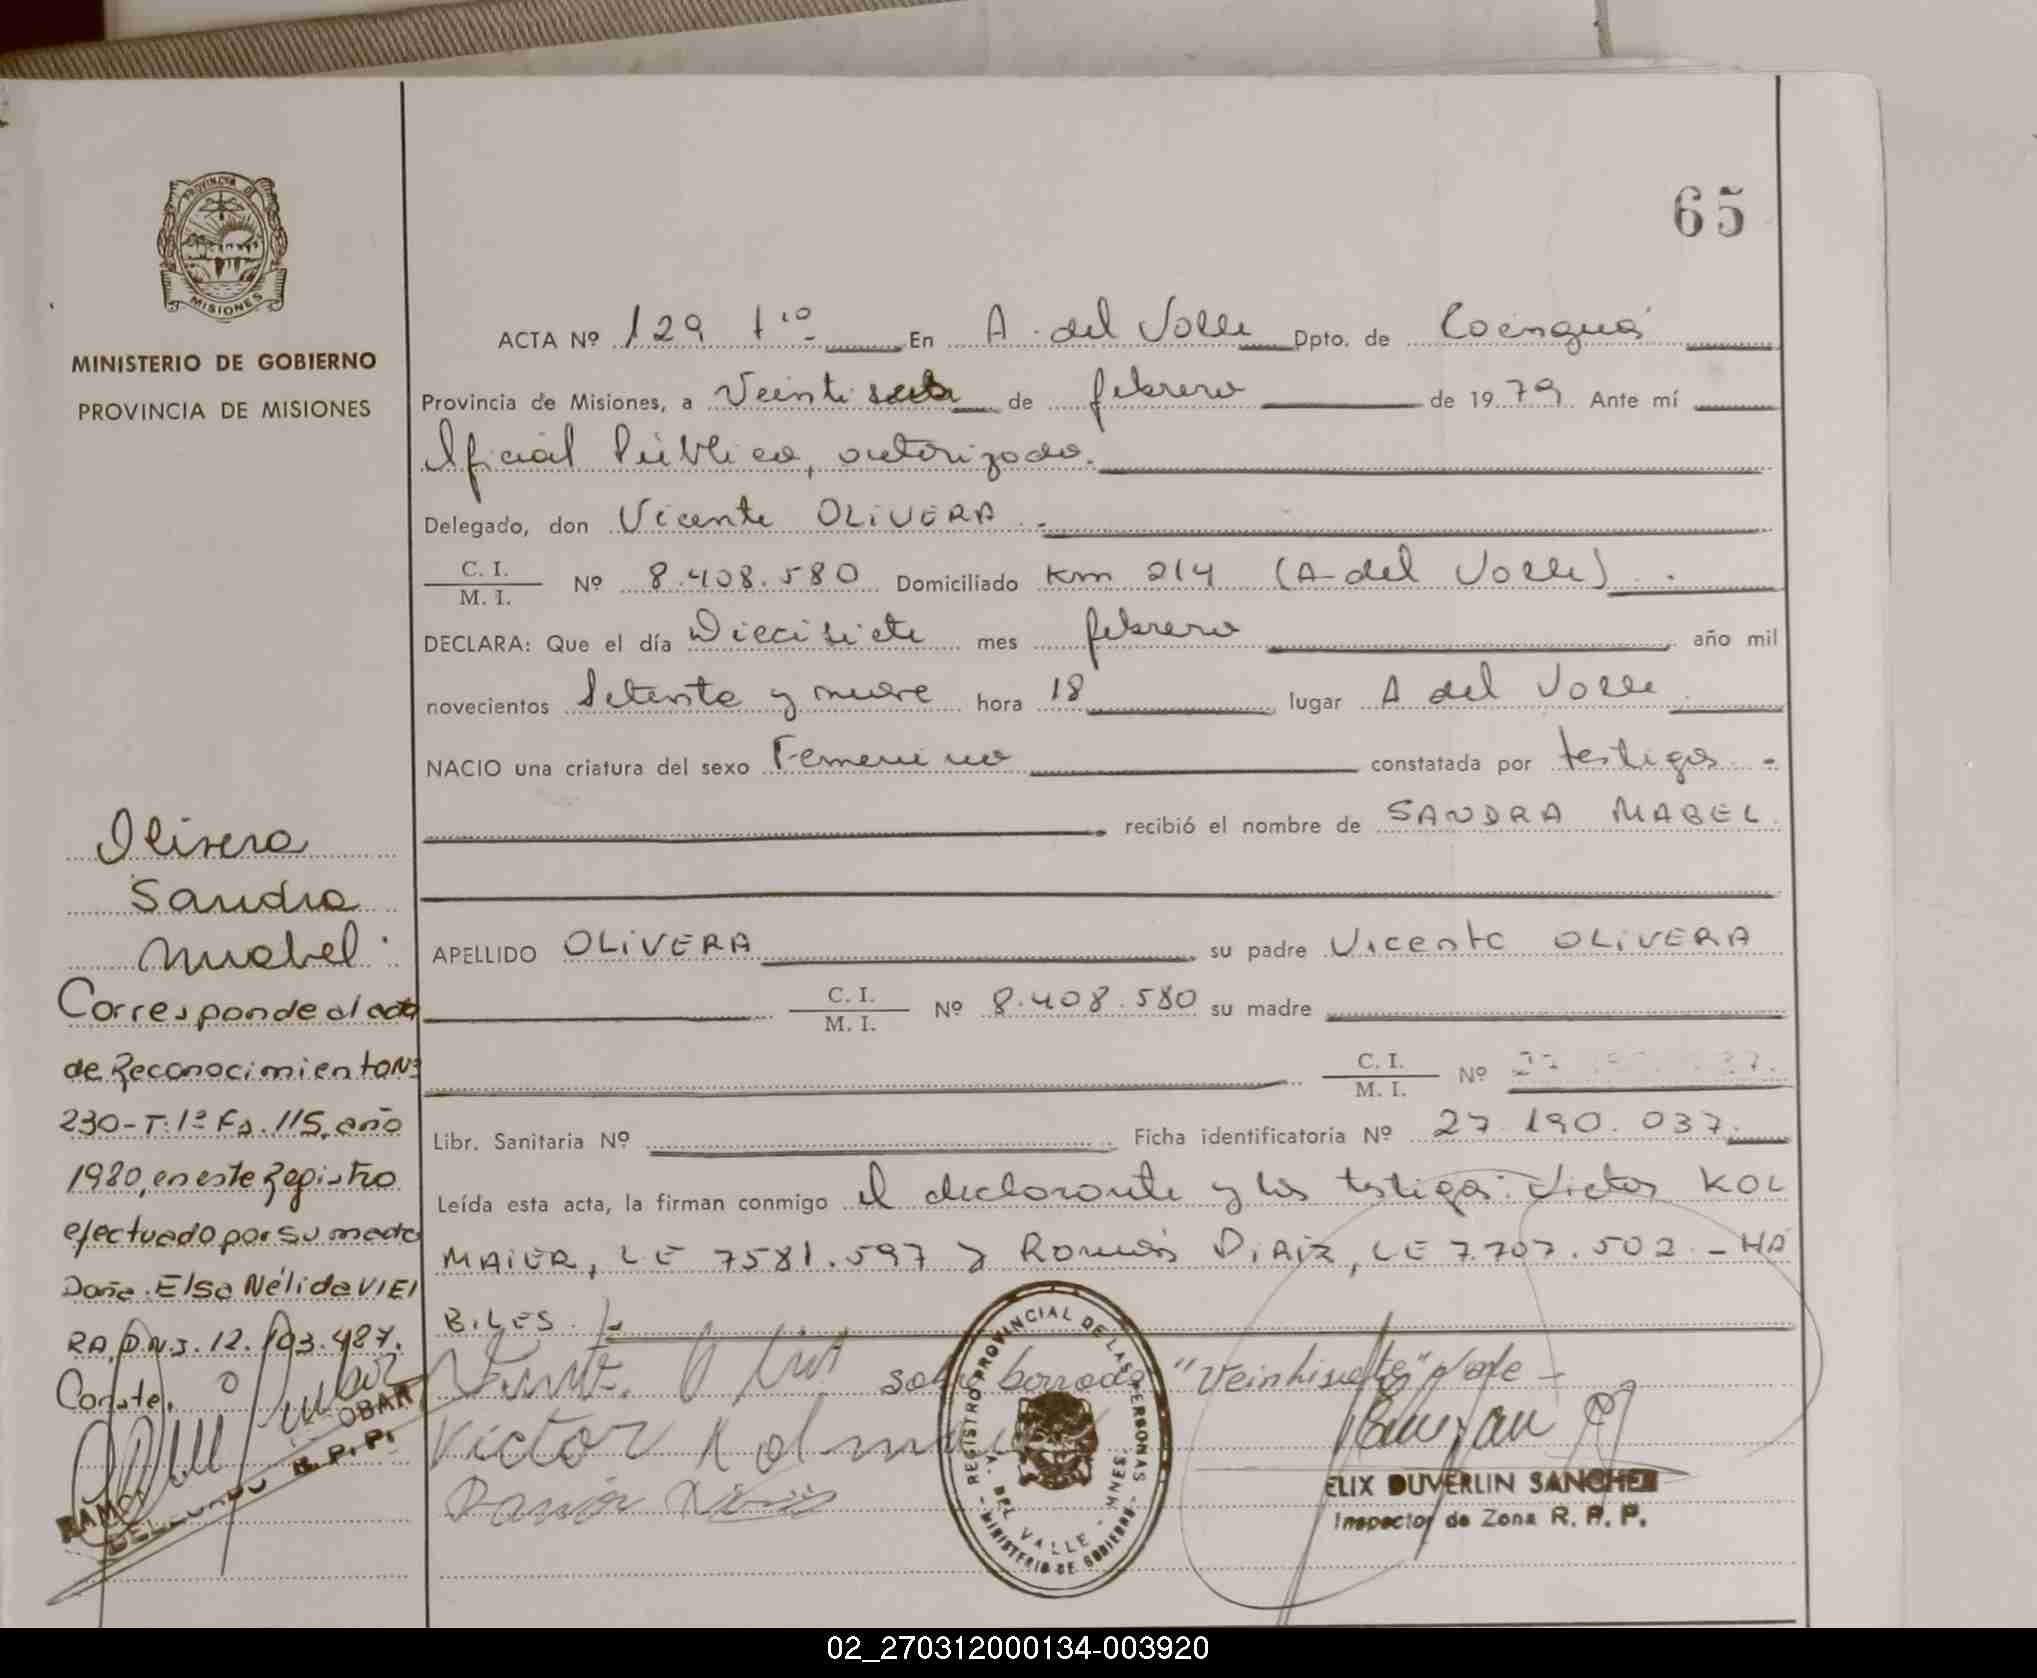 PROVINCIA DE
MISIONES
MINISTERIO DE GOBIERNO
PROVINCIA DE MISIONES
65
ACTA Nº 129 En A. del Valle Dpto. de Cainguás
Provincia de Misiones, a Veintisiete de febrero de 1979 Ante mí
Oficial Público, autorizado.
Delegado, don Vicente OLIVERA.-
C. I.
M. I.
Nº 8.408.580 Domiciliado Km 214 (A del Valle).
DECLARA: Que el día Diecisiete mes febrero año mil
novecientos Setenta y nueve hora 18 lugar A del Valle
NACIO una criatura del sexo Femenino constatada por testigos -
recibió el nombre de SANDRA MABEL
APELLIDO OLIVERA su padre Vicente OLIVERA
C. I.
M. I.
Nº 8.408.580 su madre
C. I.
M. I.
Nº
Libr. Sanitaria Nº Ficha identificatoria Nº 27.190.037.
Leída esta acta, la firman conmigo el declarante y los testigos: Victor KOL
MAIER, LE 7581.597 y Román DIAIZ, LE 7.707.502.- HÁ
BILES.
sobre borrado "Veintisiete" vale -
Victor
REGISTRO PROVINCIAL DE LAS PERSONAS
A. DEL VALLE - MNES.
MINISTERIO DE GOBIERNO
ELIX DUVERLIN SANCHEZ
Inspector de Zona R. P. P.
Olivera
Sandra
Mabel.
Corresponde al acta
de Reconocimiento Nº
230-T.1º Fo. 115, año
1980, en este Registro
efectuado por su madre
Doña. Elsa Nélida VIEI
RA, D.N.I. 12.103.487.
Conste.
R. P. P.
02_270312000134-003920